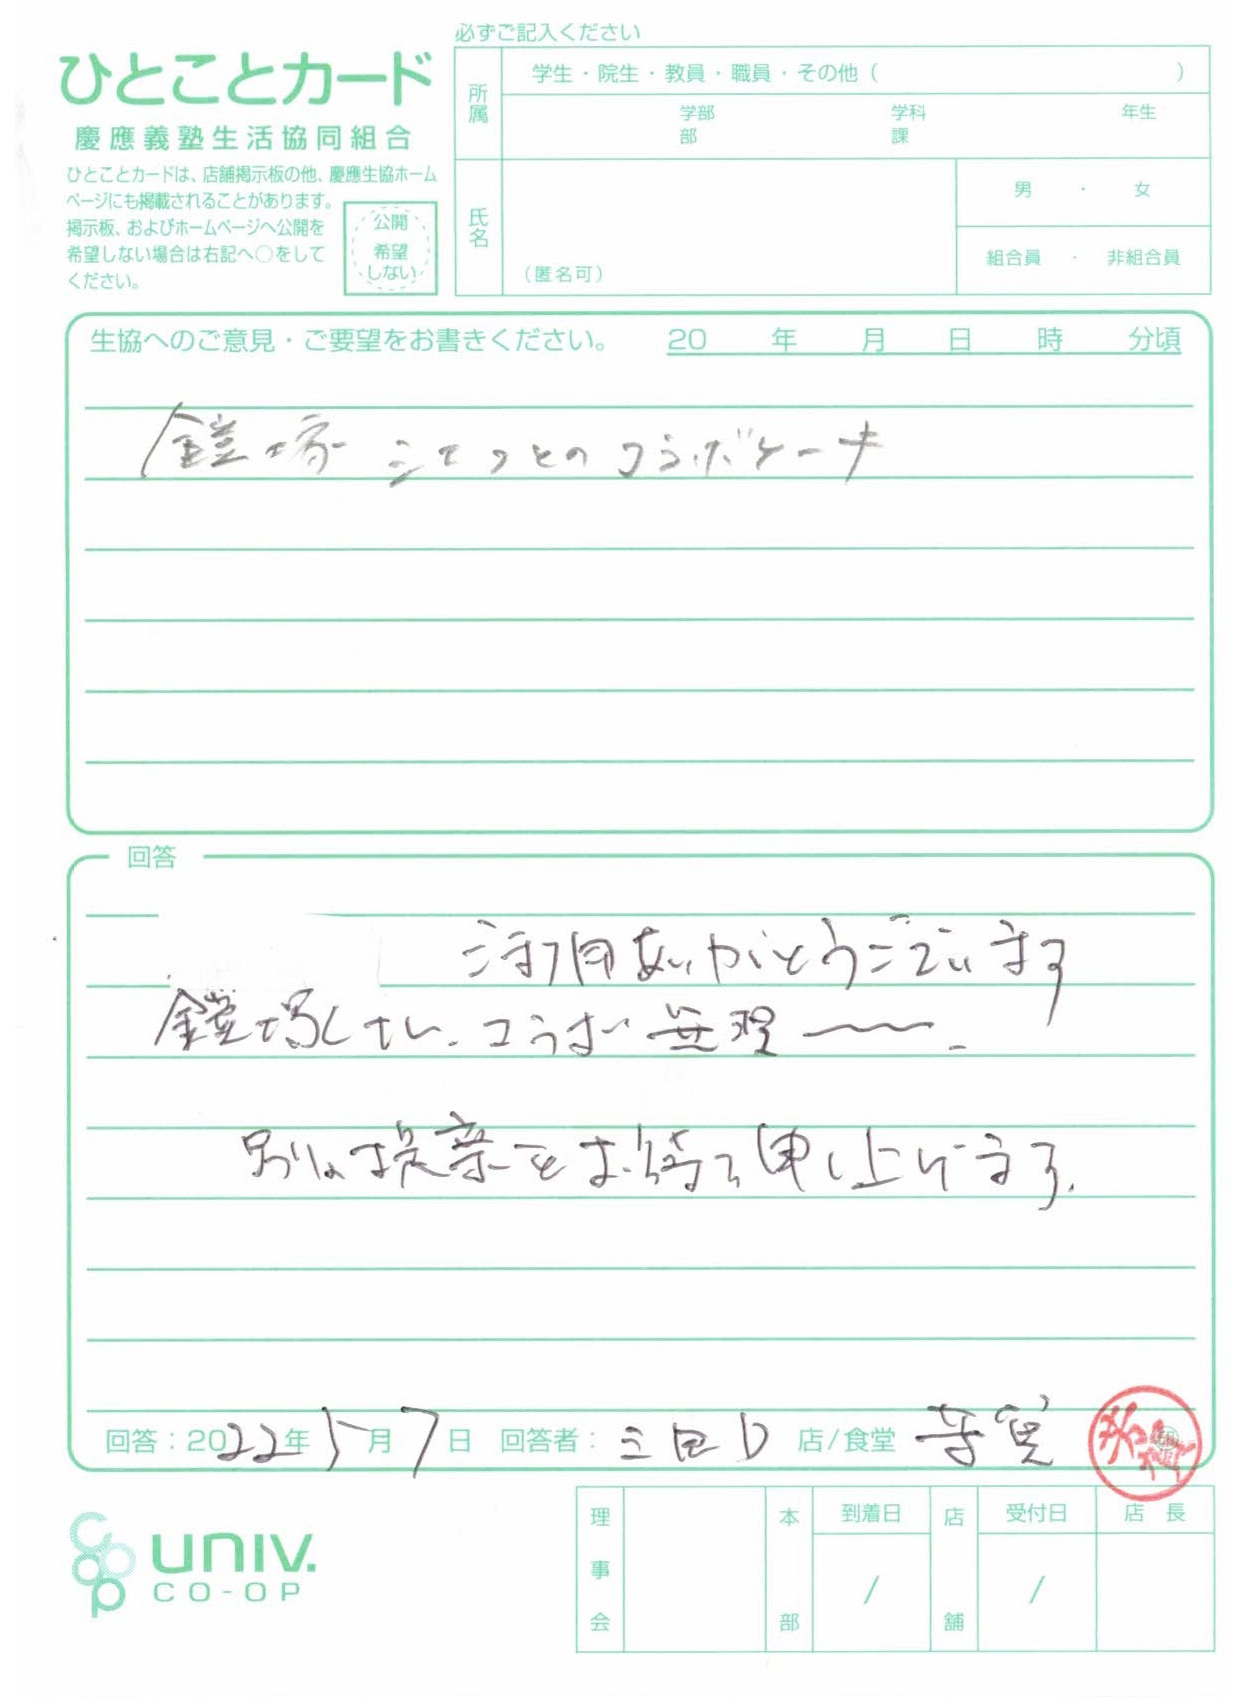 必ずご記入ください
ひとことカード
慶應義塾生活協同組合
ひとことカードは、店舗掲示板の他、慶應生協ホーム
ページにも掲載されることがあります。
掲示板、およびホームページへ公開を
希望しない場合は右記へ○をして
ください。
公開
希望
しない
所属
学生・院生・教員・職員・その他（ ）
学部 学科 年生
部 課
氏名
（匿名可）
男 ・ 女
組合員 ・ 非組合員
生協へのご意見・ご要望をお書きください。 20 年 月 日 時 分頃
鎧塚シェフとのコラボケーキ
回答
ご利用ありがとうございます
鎧塚さん、コラボ無理〜。
別の提案をお待ち申し上げます。
回答：2022年5月7日 回答者：三田 店/食堂
univ.
CO-OP
理事会
本部
到着日
/
店舗
受付日
/
店長